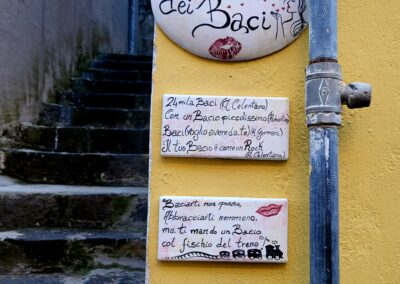 dei Baci
24mila Baci (A. Celentano)
Con un Bacio piccolissimo
Baci (voglio avere da te)
Il tuo Bacio è come un Rock
(A. Celentano)
Baciarti non posso,
Abbracciarti nemmeno,
ma ti mando un Bacio
col fischio del treno!